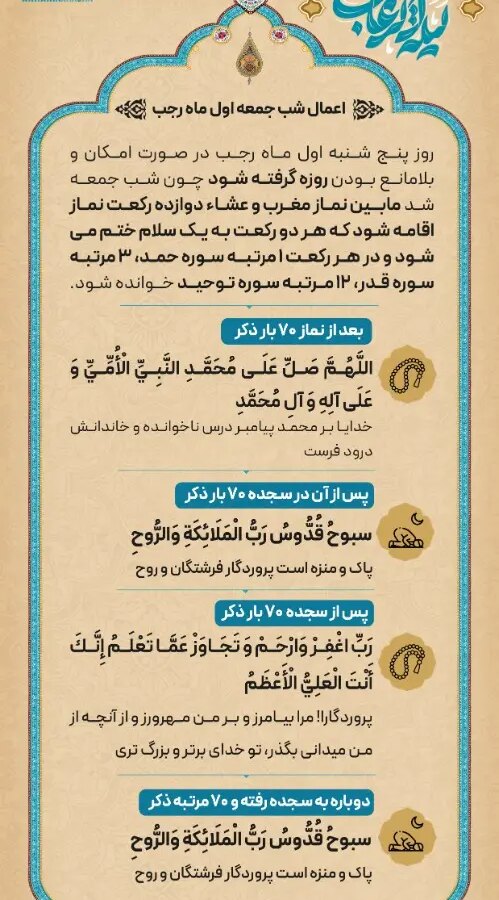 لیلة الرغائب
اعمال شب جمعه اول ماه رجب
روز پنج شنبه اول ماه رجب در صورت امکان و
بلامانع بودن روزه گرفته شود چون شب جمعه
شد مابین نماز مغرب و عشاء دوازده رکعت نماز
اقامه شود که هر دو رکعت به یک سلام ختم می
شود و در هر رکعت ۱ مرتبه سوره حمد، ۳ مرتبه
سوره قدر، ۱۲ مرتبه سوره توحید خوانده شود.
بعد از نماز ۷۰ بار ذکر
اللَّهُمَّ صَلِّ عَلَى مُحَمَّدٍ النَّبِيِّ الْأُمِّيِّ وَ
عَلَى آلِهِ وَ آلِ مُحَمَّدٍ
خدایا بر محمد پیامبر درس ناخوانده و خاندانش
درود فرست
پس از آن در سجده ۷۰ بار ذکر
سبوحٌ قُدُّوسٌ رَبُّ الْمَلَائِكَةِ وَالرُّوحِ
پاک و منزه است پروردگار فرشتگان و روح
پس از سجده ۷۰ بار ذکر
رَبِّ اغْفِرْ وَارْحَمْ وَ تَجَاوَزْ عَمَّا تَعْلَمُ إِنَّكَ
أَنْتَ الْعَلِيُّ الْأَعْظَمُ
پروردگارا! مرا بیامرز و بر من مهرورز و از آنچه از
من میدانی بگذر، تو خدای برتر و بزرگ تری
دوباره به سجده رفته و ۷۰ مرتبه ذکر
سبوحٌ قُدُّوسٌ رَبُّ الْمَلَائِكَةِ وَالرُّوحِ
پاک و منزه است پروردگار فرشتگان و روح